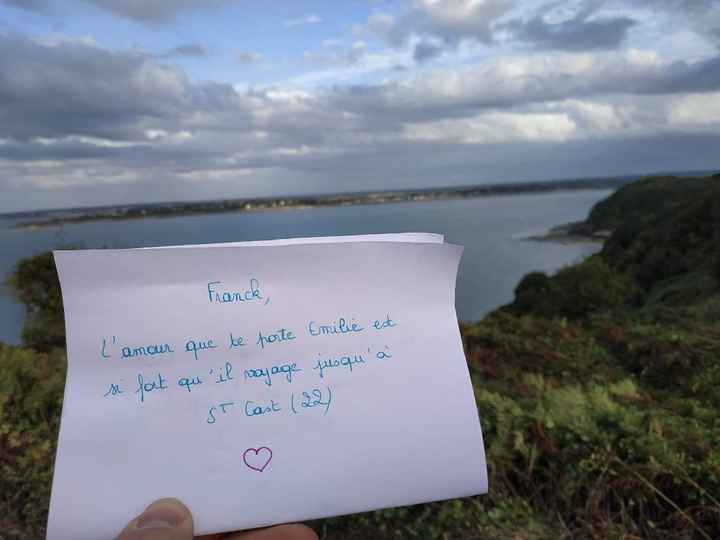 Franck,
L'amour que te porte Emilie est
si fort qu'il voyage jusqu'à
ST Cast (22)